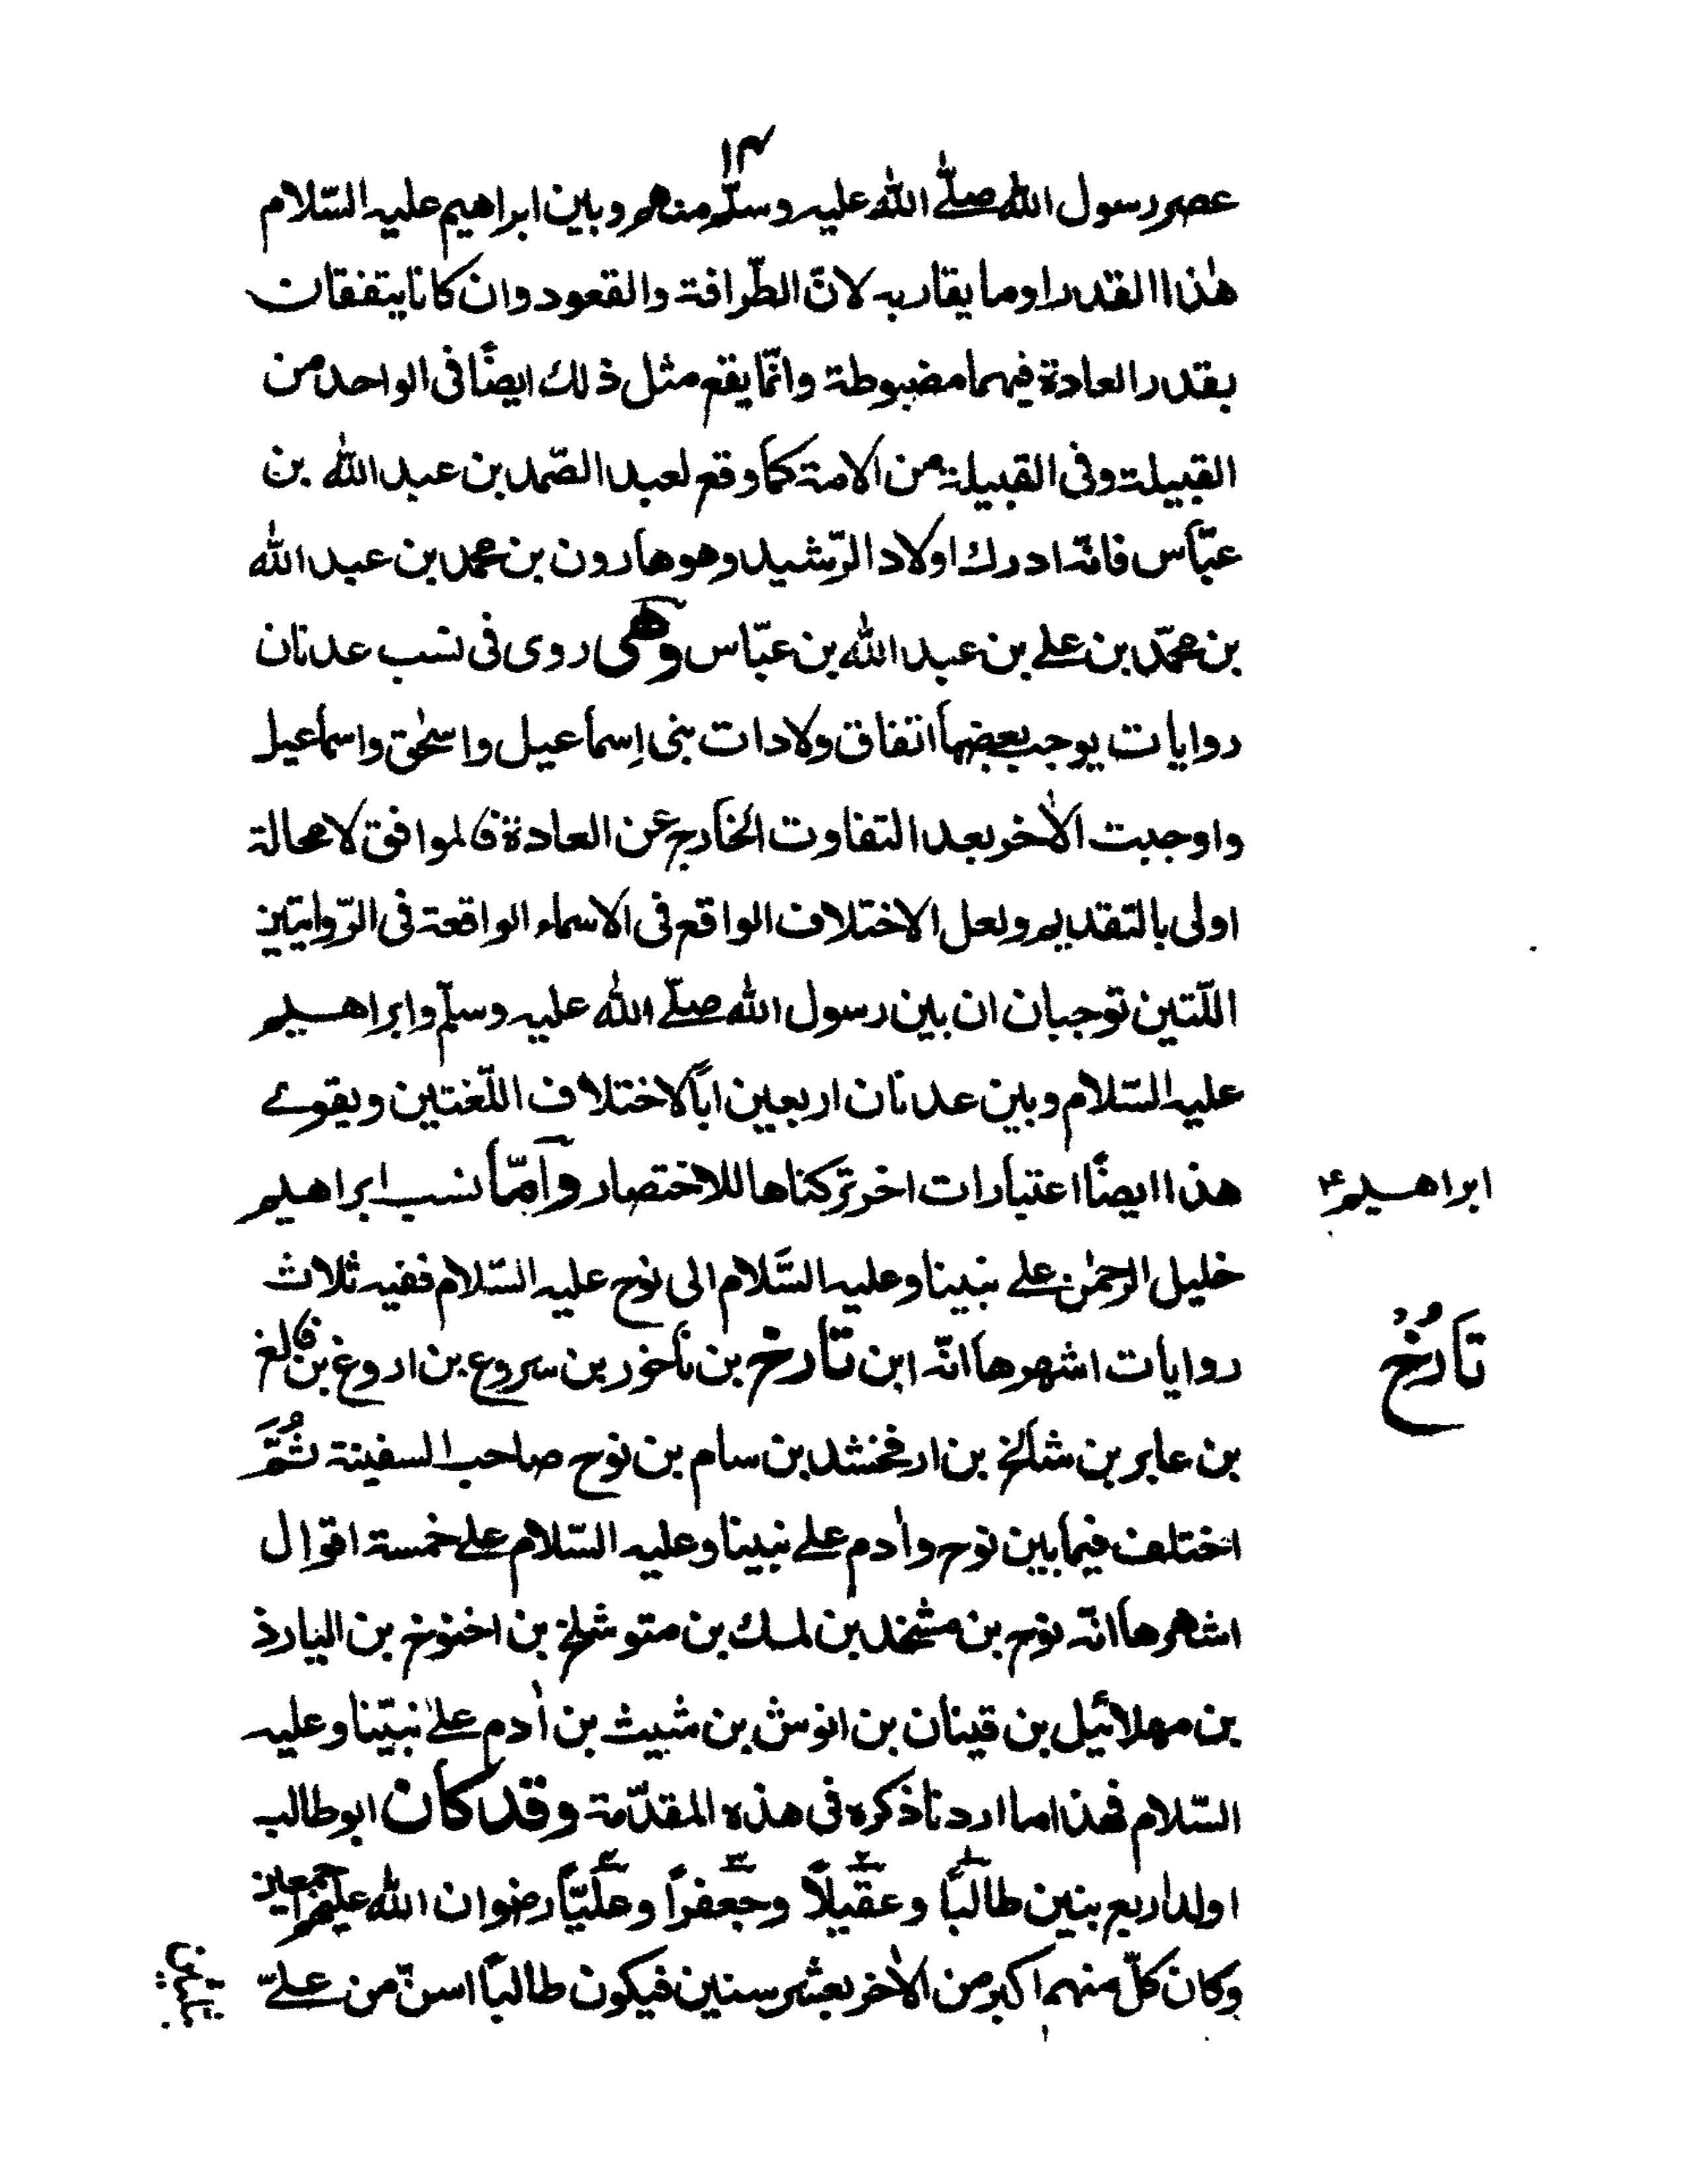 ١٣
عصر رسول الله صلّے الله عليه وسلّم منهم وبين ابراهيم عليه السّلام
هٰذا القدر او ما يقاربه لانّ الطّرافة والقعود وان كانا يتفقان
بقدر العادة فيهما مضبوطة وانّما يقع مثل ذلك ايضًا فى الواحد من
القبيلة وفى القبيلة من الامة كما وقع لعبد الصّمد بن عبد الله بن
عبّاس فانّه ادرك اولاد الرّشيد وهو هارون بن محمد بن عبد الله
بن محمّد بن علے بن عبد الله بن عبّاس وهى روى فى نسب عدنان
روايات يوجب بعضها اتفاق ولادات بنى اِسماعيل واسحٰق واسماعيل
واوجبت الاٰخر بعد التفاوت الخارج عن العادة فالموافق لا محالة
اولى بالتقديم ولعل الاختلاف الواقع فى الاسماء الواقعة فى الرّوايتين
اللّتين توجبان ان بين رسول الله صلّے الله عليه وسلّم وابراهيم
عليه السّلام وبين عدنان اربعين اباً لاختلاف اللّغتين ويقوے
هذا ايضًا اعتبارات اخر تركناها للاختصار وآمّا نسب ابراهيم
ابراهيم ع
خليل الرحمٰن علے نبينا وعليه السَّلام الى نوح عليه السّلام ففيه ثلاث
روايات اشهرها انّه ابن تارخ بن ناخور بن سروع بن اروغ بن فالغ
تَارُخْ
بن عابر بن شالخ بن ارفخشد بن سام بن نوح صاحب السفينة ثُمَّ
اختلف فيما بين نوح واٰدم علے نبينا وعليه السّلام علے خمسة اقوال
اشهرها انّه نوح بن مشخد بن لمك بن متوشلخ بن اخنوخ بن اليارذ
بن مهلائيل بن قينان بن انوش بن شيث بن اٰدم علےٰ نبيّنا وعليه
السّلام فهذا ما اردنا ذكره فى هذه المقدّمة وقد كان ابو طالب
اولد اربع بنين طالبًا وعقيلاً وجعفرًا وعليًّا رضوان الله عليهم اجمعين
وكان كلّ منهم اكبر من الاٰخر بعشر سنين فيكون طالبًا اسنّ من علےّ